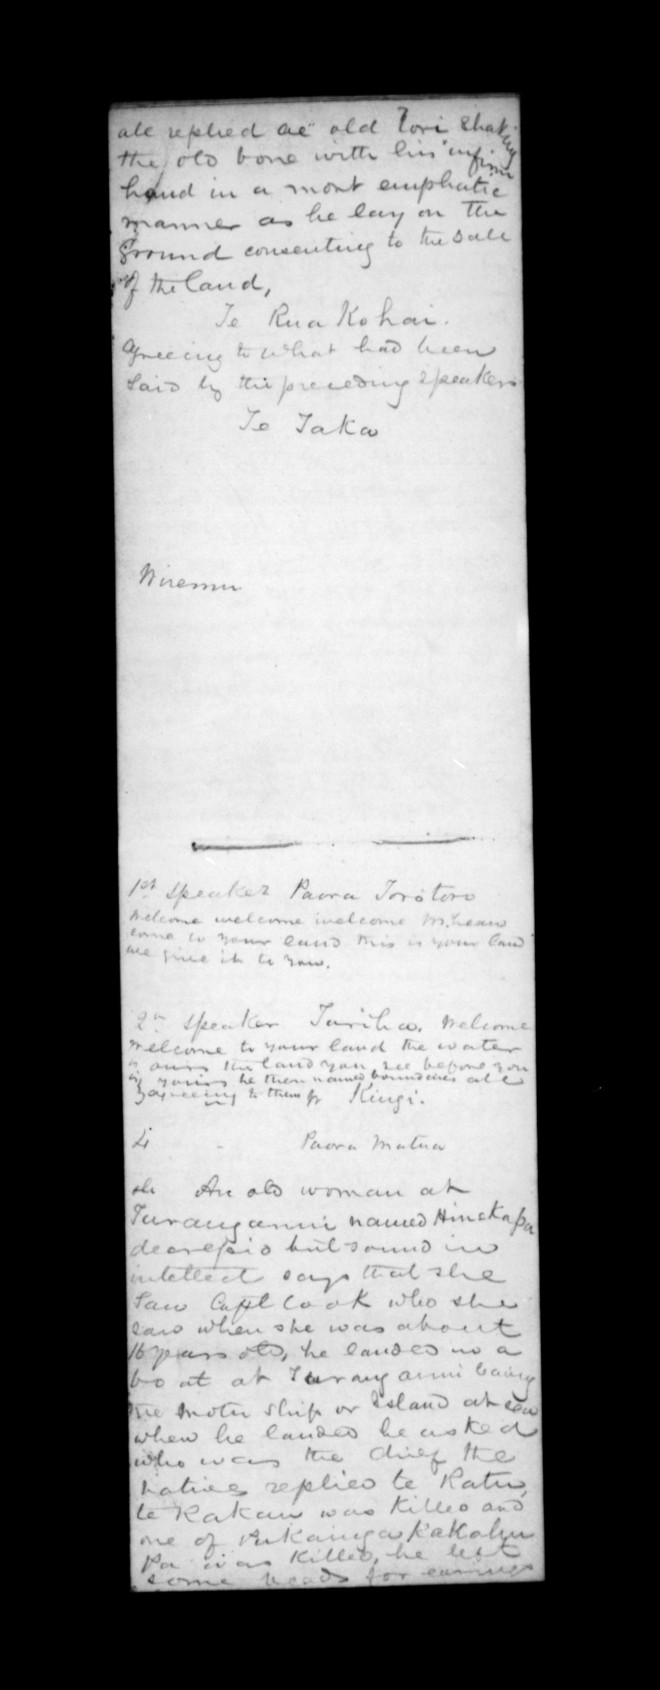 all replied ae old Tori shaking
the old bone with his infirm
hand in a most emphatic
manner as he lay on the
ground consenting to the sale
of the land,
Te Rua Kohai.
Agreeing to what had been
said by the preceding speakers
Te Taka
Wiremu
1st speaker Paora Torotoro
Welcome welcome welcome McLean
come to your land this is your land
we give it to you.
2nd speaker Tariha. Welcome
Welcome to your land the water
is ours the land you see before you
is yours he then named boundaries all
agreeing to them Kingi.
4 - Paora Matua
An old woman at
Turanganui named Hinekapa
decrepid but sound in
intellect says that she
saw Capt Cook who she
saw when she was about
16 years old, he landed in a
boat at Turanganui leaving
the ship or Island at sea
when he landed he asked
who was the chief the
natives replied te Ratu,
te Rakau was killed and
one of Pukainga Kakahu
Pa was killed, he left
some beads for earrings